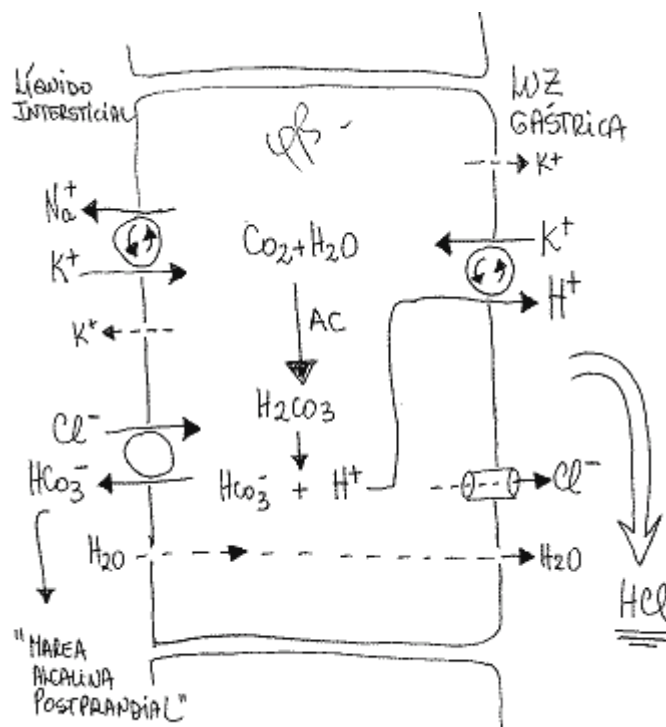 LÍQUIDO
INTERSTICIAL
LUZ
GÁSTRICA
K+
Na+
K+
CO2+H2O
K+
H+
K+
AC
H2CO3
Cl-
HCO3-
HCO3- + H+
Cl-
H2O
H2O
HCl
"MAREA
ALCALINA
POSTPRANDIAL"